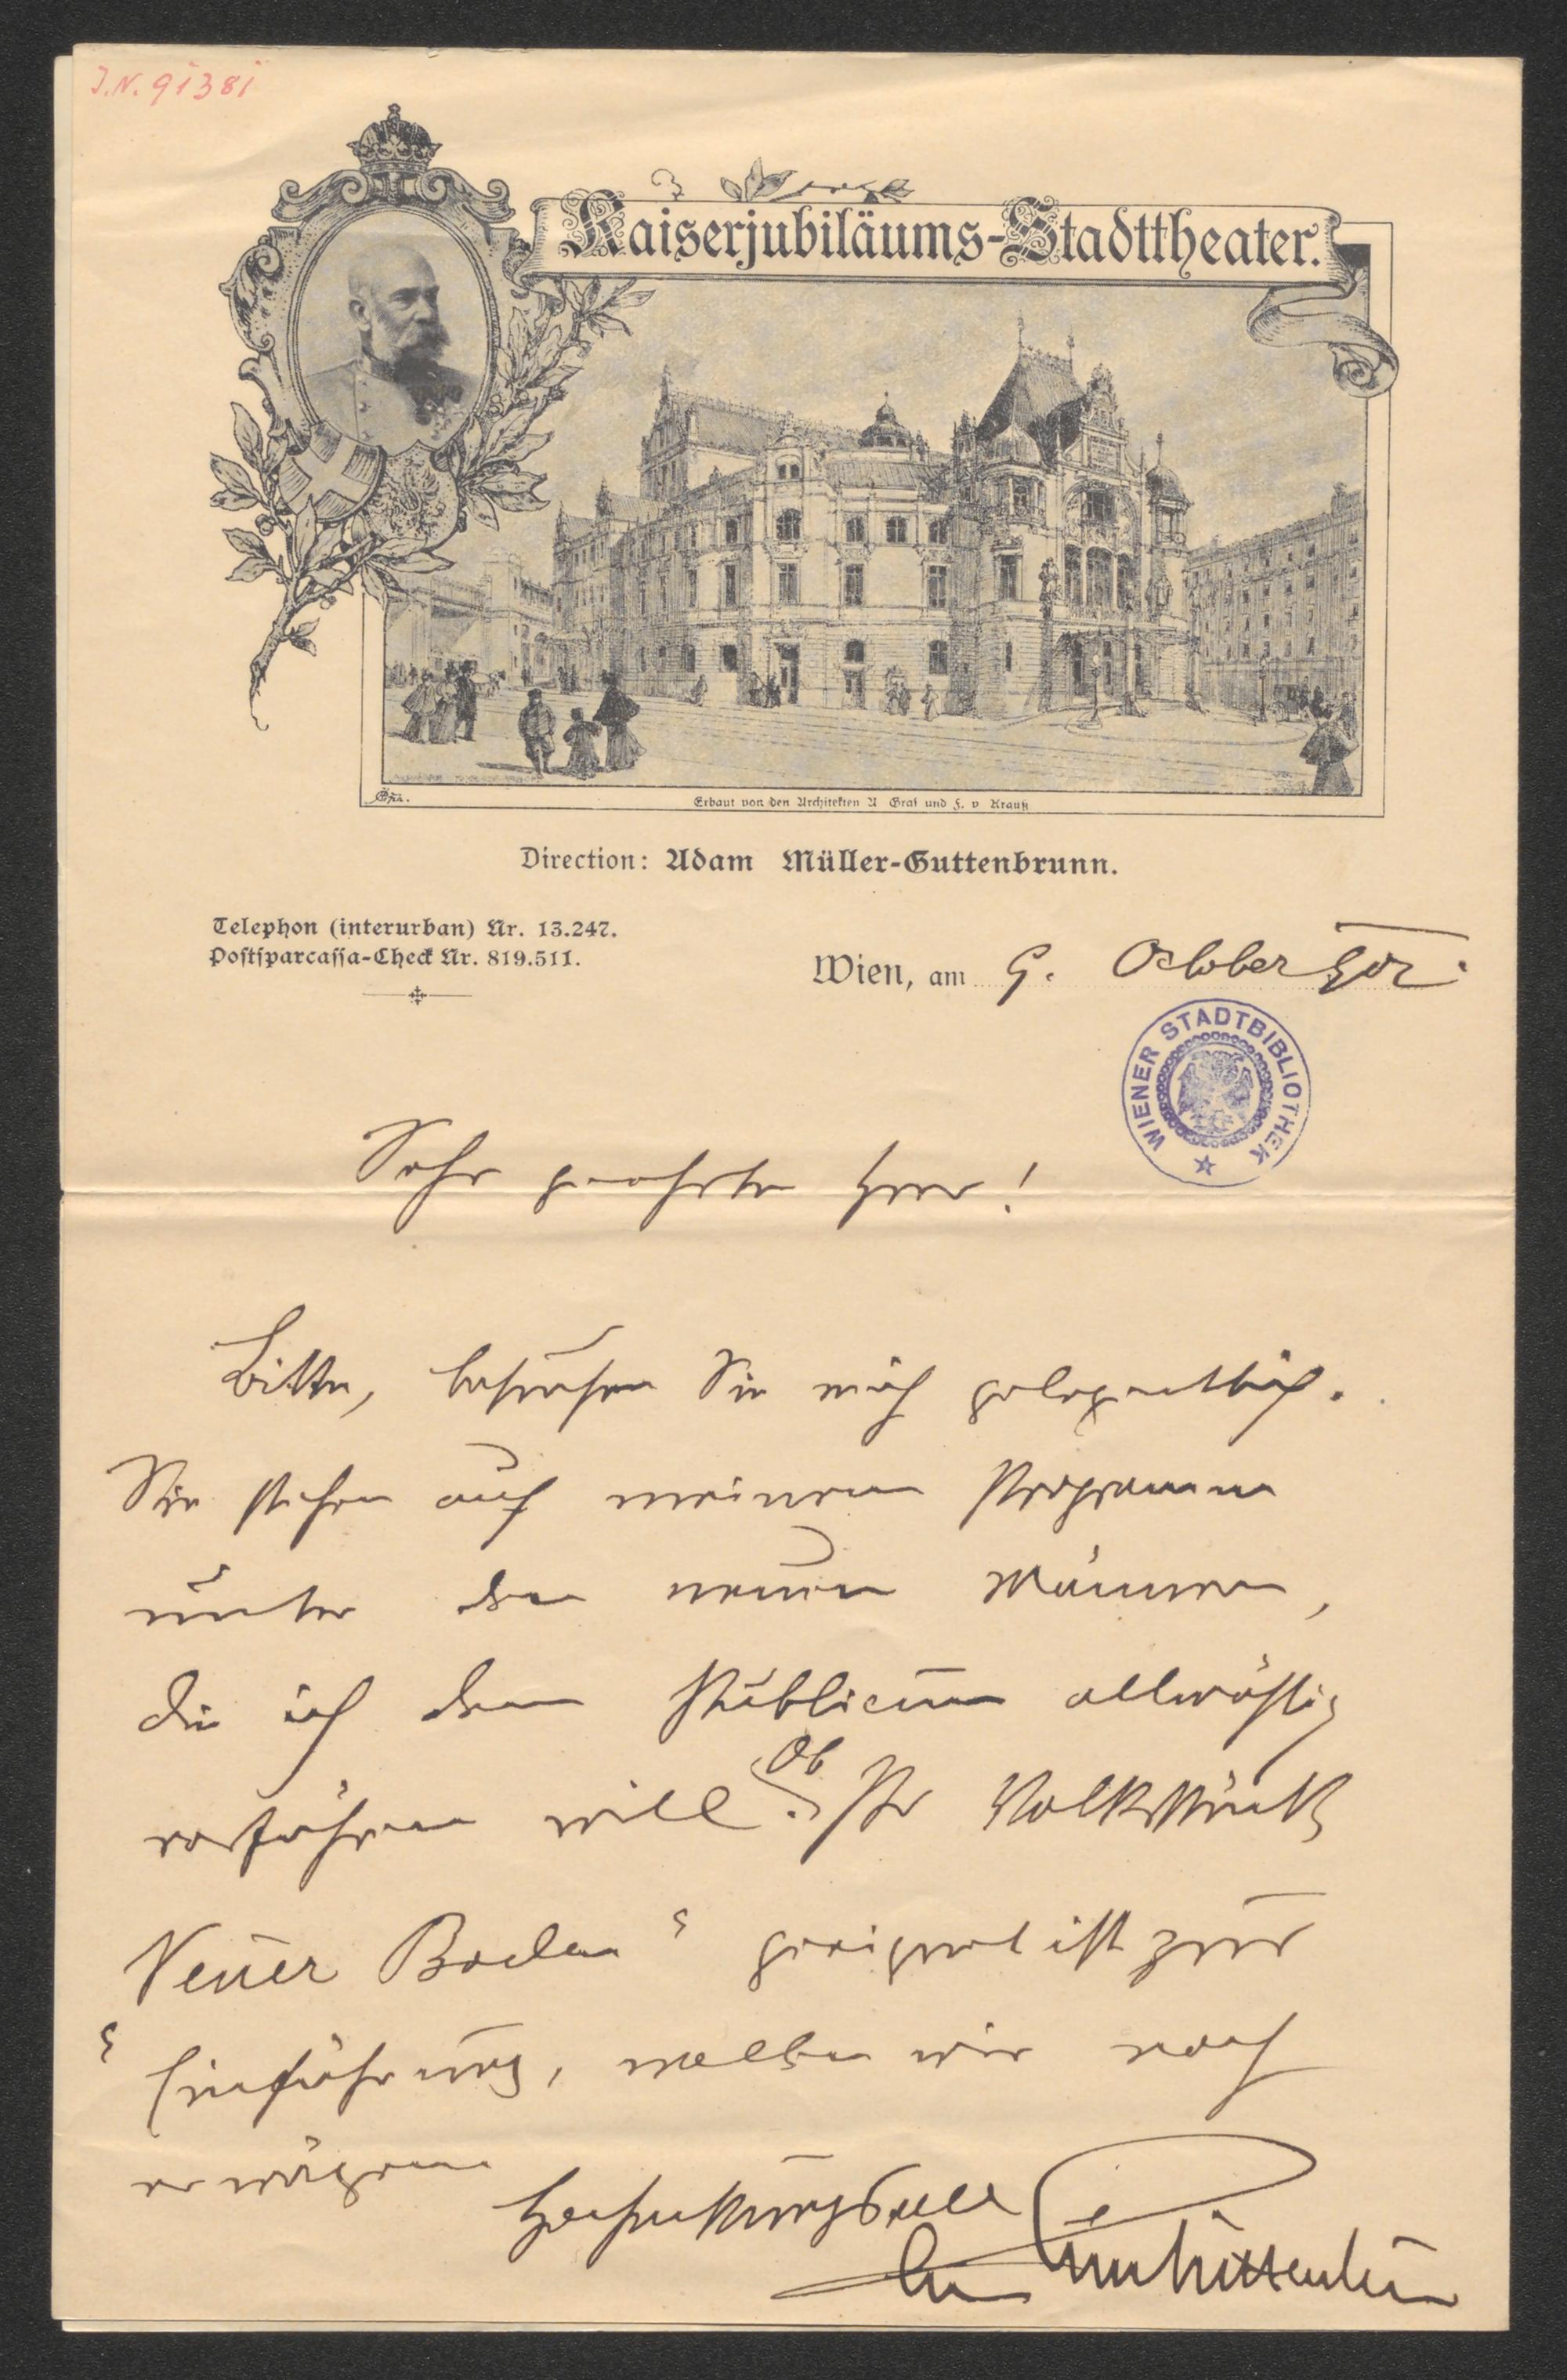 J.N. 91381
Kaiserjubiläums-Stadttheater.
Erbaut von den Architekten A Graf und F. v Krauß
Direction: Adam Müller-Guttenbrunn.
Telephon (interurban) Nr. 13.247.
Postsparcassa-Check Nr. 819.511.
Wien, am 9. October
WIENER STADTBIBLIOTHEK
Sehr geehrter Herr!
Bitte, besuchen Sie mich gelegentlich.
Sie stehen auf meinem Programm
unter den neuen Männern,
die ich dem Publicum allmählig
vorführen will. Ob Ihr Volksstück
„Neuer Boden“ geeignet ist zur
Einführung, wollen wir noch
erwägen
Hochachtungsvoll
Müller-Guttenbrunn